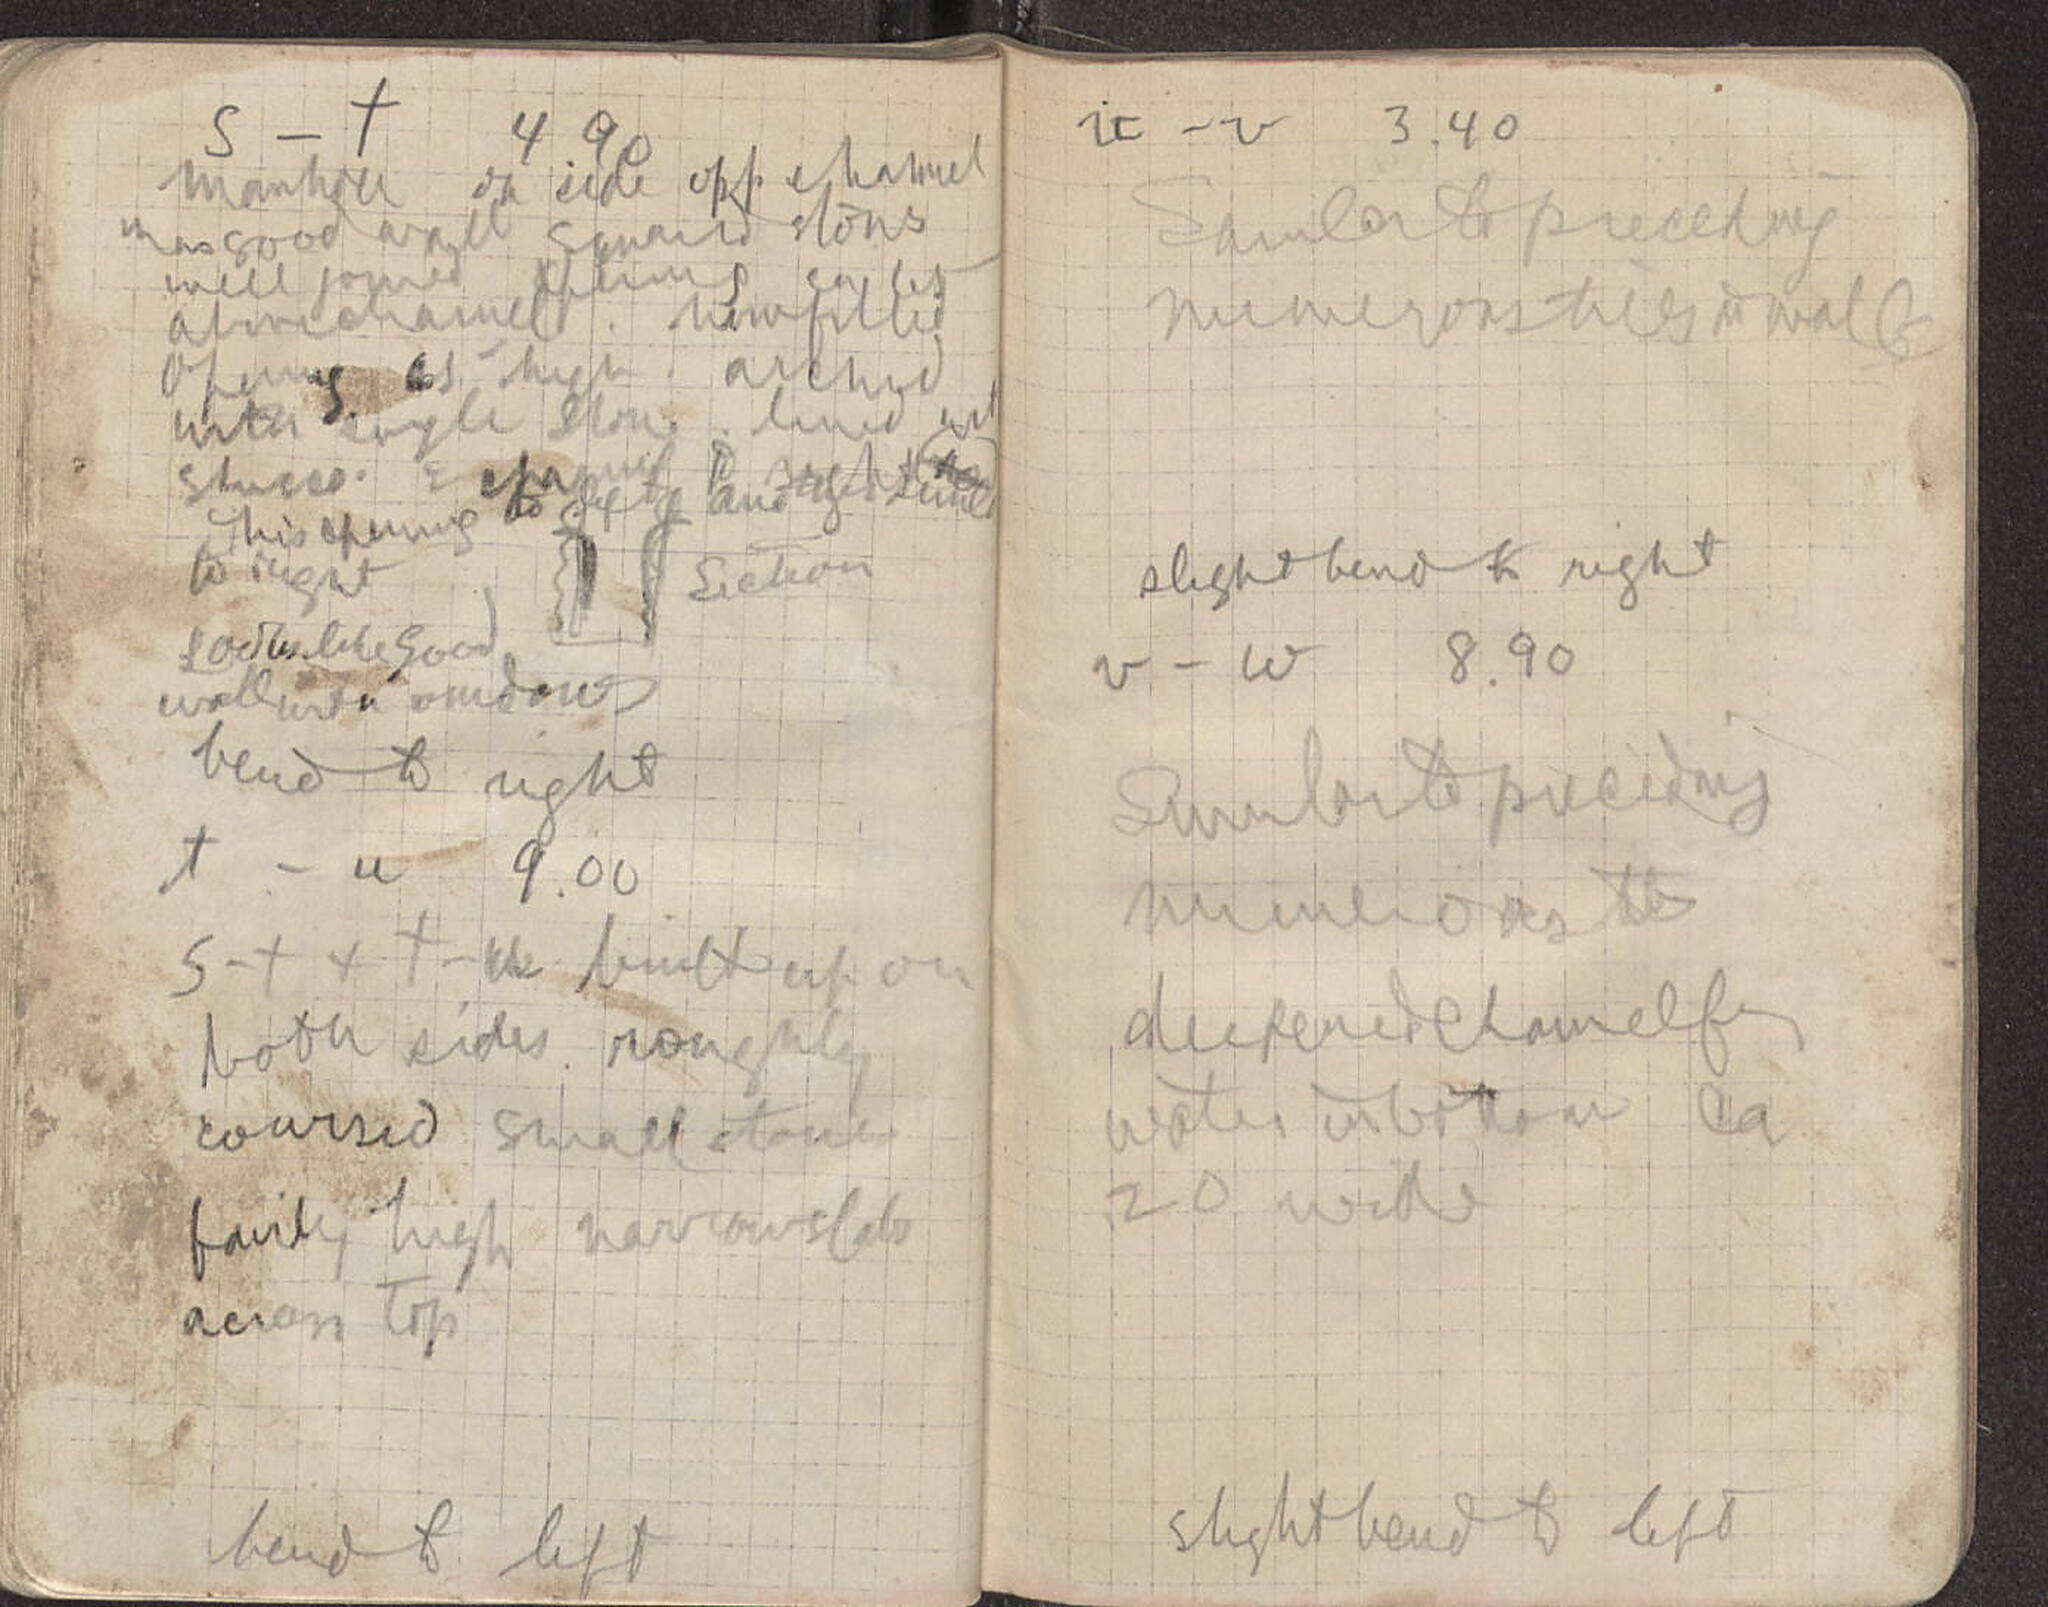 S – t 4 90
Manhole on side opp. channel
has good wall squared stones
well joined opening
above channel. now filled
Opening as high. arched
with single stone. lined with
stucco. channel
This opening to and
to right
Section
Looks like good
wall with windows
bend to right
t – u 9.00
S–t + t–u built up on
both sides roughly
coursed small stones
fairly high narrow slab
across top
bend to left
u – v 3.40
Similar to preceding
numerous tiles in walls
slight bend to right
v – w 8.90
Similar to preceding
numerous
deepened channel for
water in bottom ca
.20 wide
slight bend to left